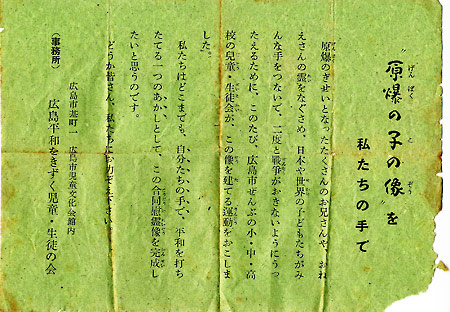 "原爆の子の像"を
私たちの手で
原爆のぎせいとなったたくさんのお兄さんや、おね
えさんの霊をなぐさめ、日本や世界の子どもたちがみ
んな手をつないで、二度と戦争がおきないようにうっ
たえるために、このたび、広島市ぜんぶの小・中・高
校の兒童・生徒会が、この像を建てる運動をおこしま
した。
私たちはどこまでも、自分たちの手で、平和を打ち
たてる一つのあかしとして、この合同慰霊像を完成し
たいと思うのです。
どうか皆さん、私たちにお力を下さい
（事務所）
広島市基町一 広島市兒童文化会館内
広島平和をきずく児童・生徒の会